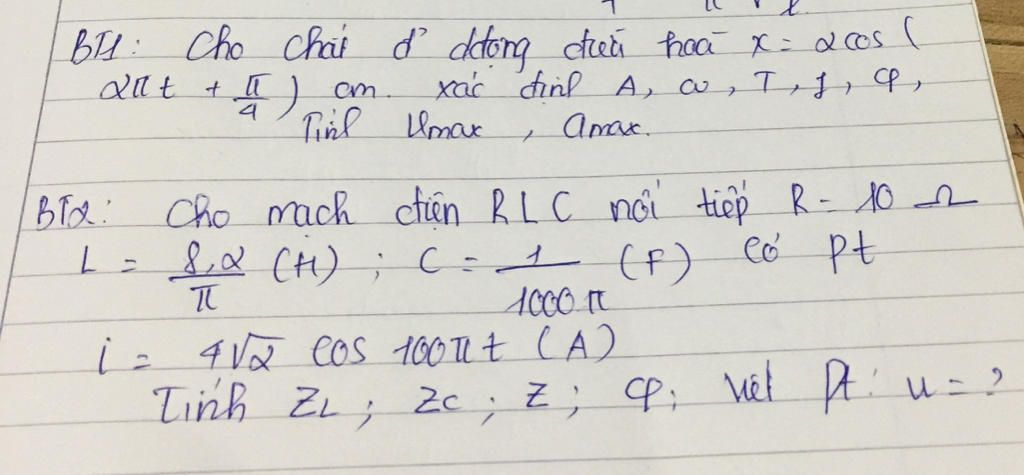 BT1: Cho chất đ' động điều hoà x = 2cos (
2πt + π/4) cm. xác định A, ω, T, f, φ,
Tính Vmax, amax.
BT2: Cho mạch điện RLC nối tiếp R = 10 Ω
L = 8,2/π (H); C = 1/1000π (F) có pt
i = 4√2 cos 100πt (A)
Tính ZL; ZC; Z; φ; viết Pt: u = ?